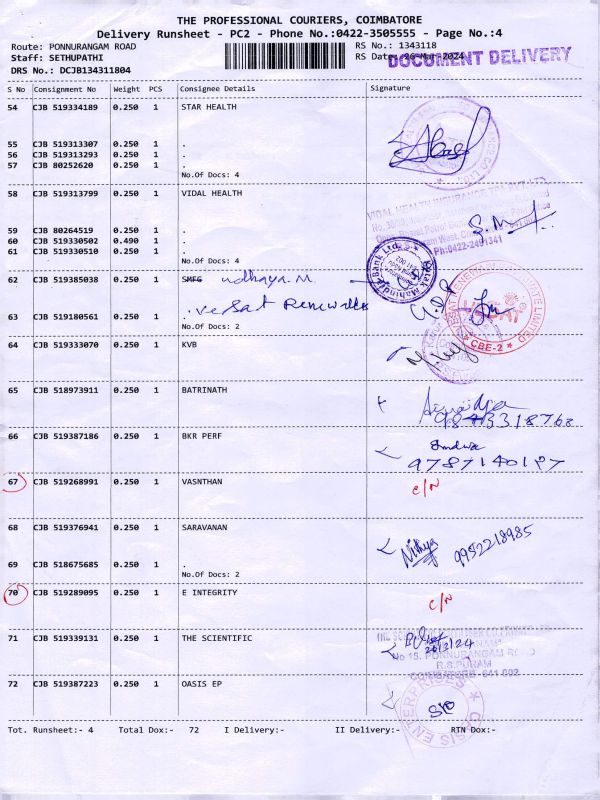 THE PROFESSIONAL COURIERS, COIMBATORE
Delivery Runsheet - PC2 - Phone No.:0422-3505555 - Page No.:4
Route: PONNURANGAM ROAD RS No.: 1343118
Staff: SETHUPATHI RS Date: 26-Mar-2024
DOCUMENT DELIVERY
DRS No.: DCJB134311804
S No Consignment No Weight PCS Consignee Details Signature
54 CJB 519334189 0.250 1 STAR HEALTH
55 CJB 519313307 0.250 1 .
56 CJB 519313293 0.250 1 .
57 CJB 80252620 0.250 1 .
No.Of Docs: 4
58 CJB 519313799 0.250 1 VIDAL HEALTH
VIDAL HEALTH INSURANCE TPA PVT LTD
Ph:0422-2491341
59 CJB 80264519 0.250 1 .
60 CJB 519330502 0.490 1 .
61 CJB 519330510 0.250 1 .
No.Of Docs: 4
Kotak Mahindra Bank Ltd.
62 CJB 519385038 0.250 1 SMFG udhaya.M
63 CJB 519180561 0.250 1 .
No.Of Docs: 2
CBE-2
64 CJB 519333070 0.250 1 KVB
65 CJB 518973911 0.250 1 BATRINATH
66 CJB 519387186 0.250 1 BKR PERF
9787140127
67 CJB 519268991 0.250 1 VASNTHAN C/N
68 CJB 519376941 0.250 1 SARAVANAN Nithya 9952218985
69 CJB 518675685 0.250 1 .
No.Of Docs: 2
70 CJB 519289095 0.250 1 E INTEGRITY C/N
71 CJB 519339131 0.250 1 THE SCIENTIFIC
26/3/24
No 15, PONNURANGAM ROAD
R.S.PURAM
COIMBATORE - 641 002
72 CJB 519387223 0.250 1 OASIS EP
OASIS ENTERPRISES
Tot. Runsheet:- 4 Total Dox:- 72 I Delivery:- II Delivery:- RTN Dox:-